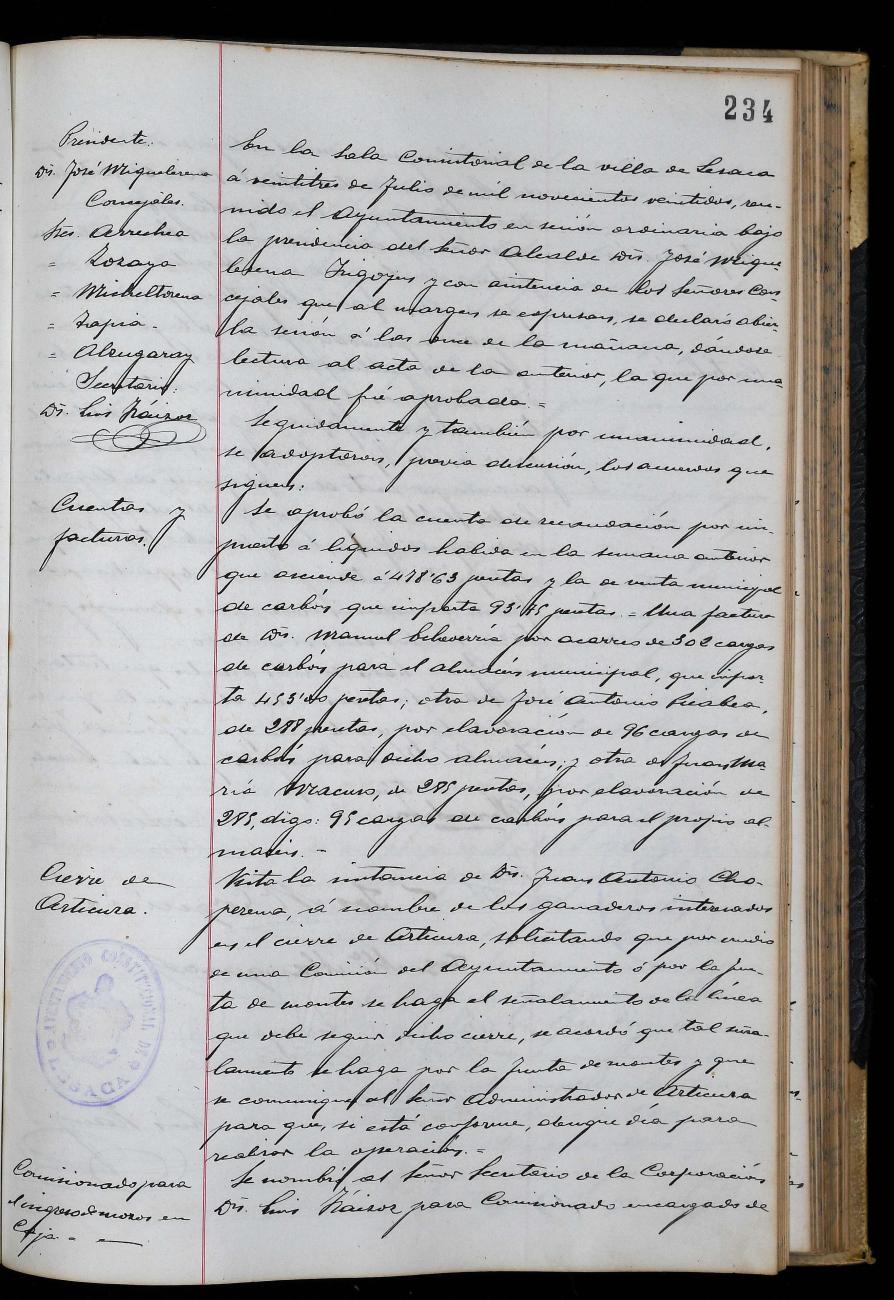 234
Presidente:
Dn. José Miquelerena
Concejales.
Sres. Arrechea
= Lozaya
= Micheltorena
= Tapia -
= Alzugaray
Secretario:
Dn. Luis
En la Sala Consistorial de la villa de Lesaca
á veintitres de Julio de mil novecientos veintidos, reu-
nido el Ayuntamiento en sesión ordinaria bajo
la presidencia del Señor Alcalde Dn. José Mique-
lerena Irigoyen y con asistencia de los Señores Con-
cejales que al margen se expresan, se declaró abier-
ta la sesión á las once de la mañana, dándose
lectura al acta de la anterior, la que por una-
nimidad fué aprobada. =
Seguidamente y también por unanimidad,
se adoptaron, previa discusión, los acuerdos que
siguen:
Cuentas y
facturas.
Se aprobó la cuenta de recaudación por im-
puesto á líquidos habida en la semana anterior
que asciende á 478'63 pesetas y la de venta municipal
de carbón que importa 93'75 pesetas. = Una factura
de Dn. Manuel Echeverría por acarreo de 302 cargas
de carbón para el almacén municipal, que impor-
ta 453'00 pesetas; otra de José Antonio
de 288 pesetas, por elavoración de 96 cargas de
carbón para dicho almacén; y otra de Juan Ma-
ría Macuso, de 285 pesetas, por elavoración de
285, digo: 95 cargas de carbón para el propio al-
macén. -
Cierre de
Articuza.
Vista la instancia de Dn. Juan Antonio Cho-
perena, á nombre de los ganaderos interesados
en el cierre de Articuza, solicitando que por medio
de una Comisión del Ayuntamiento ó por la Jun-
ta de montes se haga el señalamiento de la línea
que debe seguir dicho cierre, se acordó que tal seña-
lamiento se haga por la Junta de montes y que
se comunique al Señor Administrador de Articuza
para que, si está conforme, designe día para
realizar la operación. =
AYUNTAMIENTO CONSTITUCIONAL DE
LESACA
Comisionado para
el ingreso de mozos en
Caja. - -
Se nombró al Señor Secretario de la Corporación
Dn. Luis para Comisionado encargado de